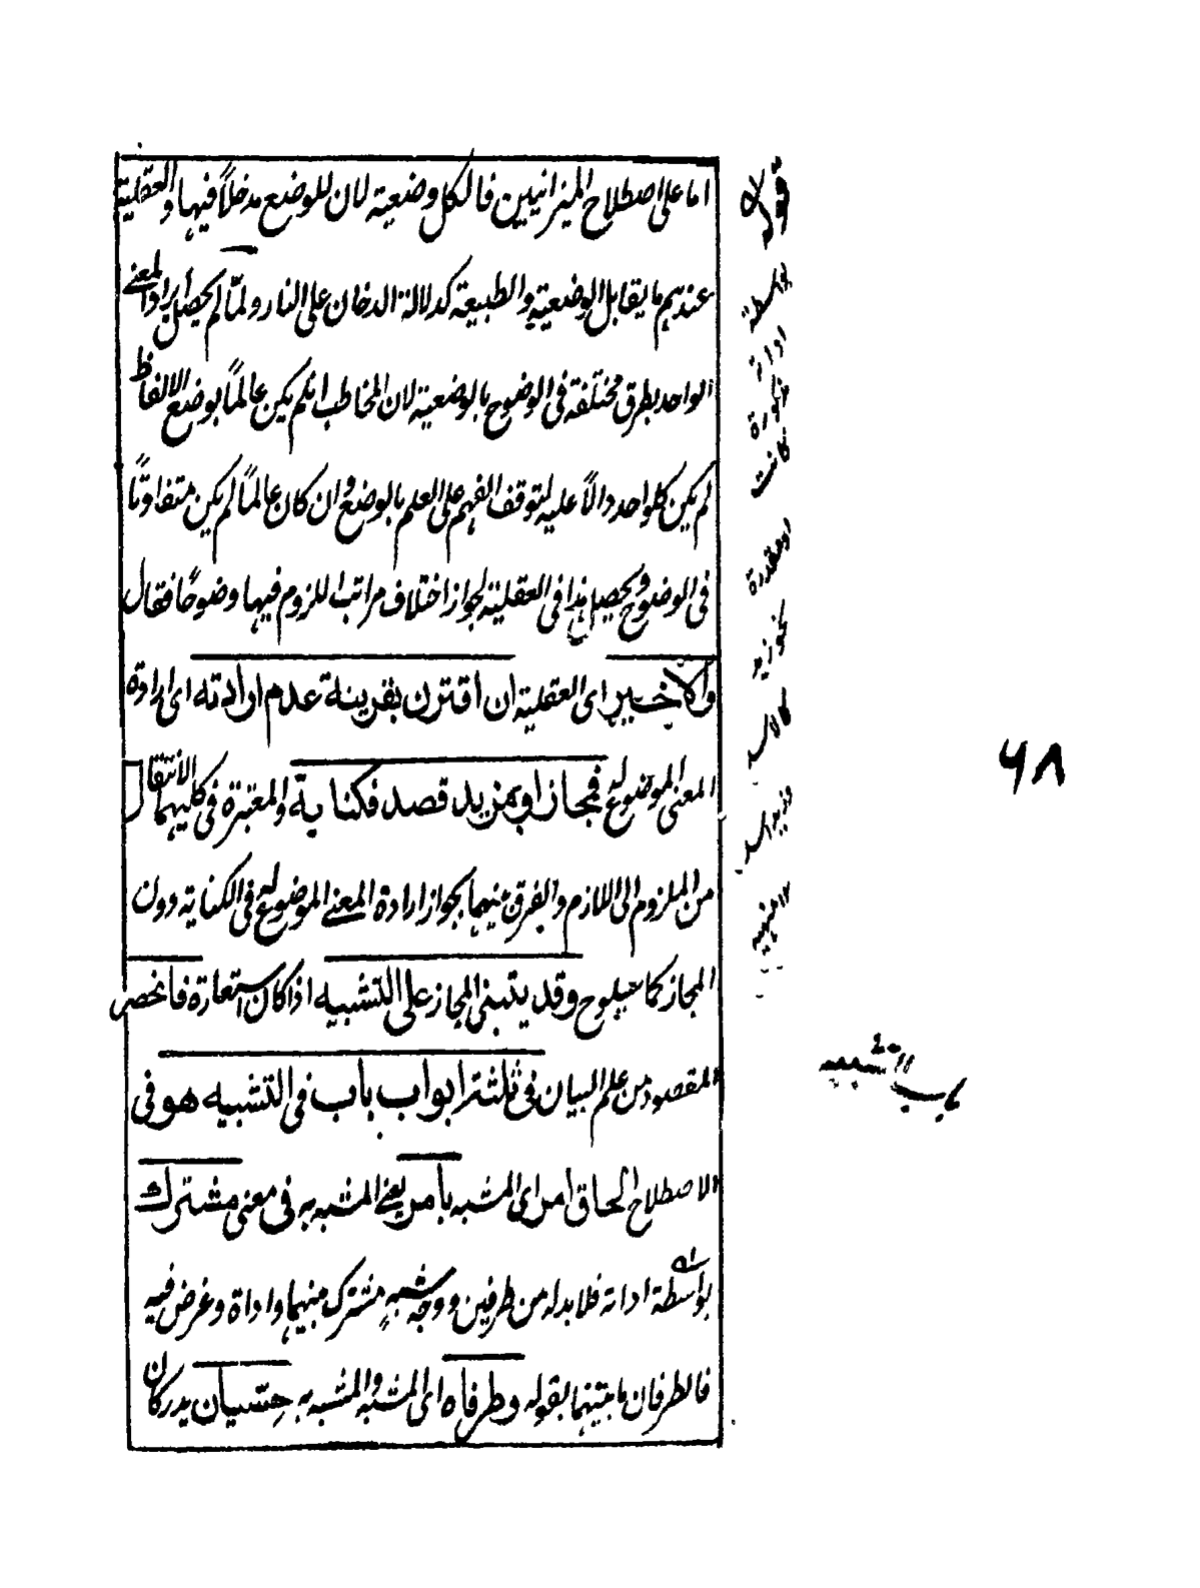 اما على اصطلاح الميزانيين فالكل وضعية لان للوضع مدخلاً فيها والعقلية
عندهم ما يقابل الوضعية والطبيعة كدلالة الدخان على النار ولمّا لم يحصل ايراد المعنى
الواحد بطرق مختلفة فى الوضوح بالوضعية لان المخاطب ان لم يكن عالمًا بوضع الالفاظ
لم يكن كلواحد دالاً عليه لتوقف الفهم على العلم بالوضع وان كان عالمًا لم يكن متفاوتًا
فى الوضوح ويحصل هذا فى العقلية لجواز اختلاف مراتب اللزوم فيها وضوحًا فقال
والأخير اى العقلية ان اقترن بقرينة عدم ارادته اى ارادة
المعنى الموضوع له فمجاز او بمزيد قصد فكناية والمعتبرة فى كليهما الانتقال
من الملزوم الى اللازم والفرق بينهما بجواز ارادة المعنى الموضوع له فى الكناية دون
المجاز كما سيلوح وقد يتبنى المجاز على التشبيه اذا كان استعارة فانحصر
المقصود من علم البيان فى ثلثة ابواب باب فى التشبيه هو فى
الاصطلاح الحاق امر اى المشبه بامر يعنى المشبه به فى معنى مشترك
بواسطة اداته فلا بد له من طرفين ووجه شبهٍ مشترك بينهما واداة وغرض فيه
فالطرفان ما بيّنهما بقوله وطرفاه اى المشبه والمشبه به حِسّيان يدركان
قوله
بواسطة
اداة
مذكورة
كانت
او مقدرة
نحو زيد
كالاسد
وزيد اسد
١٢ منهيه
٦٨
باب التشبيه